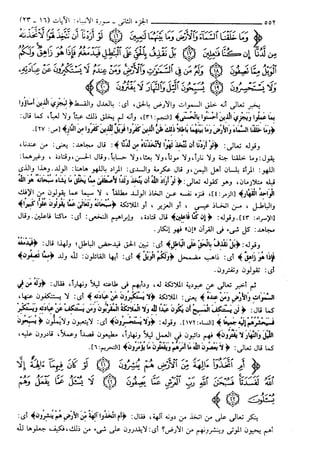 ٥٥٢ الجزء الثاني - سورة الأنبياء: الآيات (١٦ - ٢٣)
وَمَا خَلَقْنَا السَّمَاءَ وَالْأَرْضَ وَمَا بَيْنَهُمَا لَاعِبِينَ لَوْ أَرَدْنَا أَن نَّتَّخِذَ لَهْوًا لَّاتَّخَذْنَاهُ
مِن لَّدُنَّا إِن كُنَّا فَاعِلِينَ بَلْ نَقْذِفُ بِالْحَقِّ عَلَى الْبَاطِلِ فَيَدْمَغُهُ فَإِذَا هُوَ زَاهِقٌ وَلَكُمُ الْوَيْلُ
مِمَّا تَصِفُونَ وَلَهُ مَن فِي السَّمَاوَاتِ وَالْأَرْضِ وَمَنْ عِندَهُ لَا يَسْتَكْبِرُونَ عَنْ عِبَادَتِهِ
وَلَا يَسْتَحْسِرُونَ يُسَبِّحُونَ اللَّيْلَ وَالنَّهَارَ لَا يَفْتُرُونَ
يخبر تعالى أنه خلق السموات والأرض بالحق، أي: بالعدل والقسط ﴿لِيَجْزِيَ الَّذِينَ أَسَاءُوا
بِمَا عَمِلُوا وَيَجْزِيَ الَّذِينَ أَحْسَنُوا بِالْحُسْنَى﴾ [النجم:٣١]، وأنه لم يخلق ذلك عبثاً ولا لعباً، كما قال:
﴿وَمَا خَلَقْنَا السَّمَاءَ وَالْأَرْضَ وَمَا بَيْنَهُمَا بَاطِلًا ذَلِكَ ظَنُّ الَّذِينَ كَفَرُوا فَوَيْلٌ لِّلَّذِينَ كَفَرُوا مِنَ النَّارِ﴾ (ص: ٢٧].
وقوله تعالى: ﴿لَوْ أَرَدْنَا أَن نَّتَّخِذَ لَهْوًا لَّاتَّخَذْنَاهُ مِن لَّدُنَّا﴾ قال مجاهد: يعني: من عندنا،
يقول: وما خلقنا جنة ولا ناراً، ولا موتاً، ولا بعثاً، ولا حساباً. وقال الحسن، وقتادة ، وغيرهما:
اللهو: المرأة بلسان أهل اليمن، وقال عكرمة والسدي: المراد باللهو هاهنا: الولد. وهذا والذي
قبله متلازمان، وهو كقوله تعالى: ﴿لَّوْ أَرَادَ اللَّهُ أَن يَتَّخِذَ وَلَدًا لَّاصْطَفَى مِمَّا يَخْلُقُ مَا يَشَاءُ سُبْحَانَهُ هُوَ اللَّهُ
الْوَاحِدُ الْقَهَّارُ﴾ [الزمر: ٤]، فنزه نفسه عن اتخاذ الولد مطلقاً ، لا سيما عما يقولون من الإفك
والباطل، من اتخاذ عيسى ، أو العزير ، أو الملائكة ﴿سُبْحَانَهُ وَتَعَالَى عَمَّا يَقُولُونَ عُلُوًّا كَبِيرًا﴾
[الإسراء: ٤٣]. وقوله: ﴿إِن كُنَّا فَاعِلِينَ﴾ قال قتادة، وإبراهيم النخعي: أي: ماكنا فاعلين. وقال
مجاهد: كل شيء في القرآن «إن» فهو إنكار.
وقوله: ﴿بَلْ نَقْذِفُ بِالْحَقِّ عَلَى الْبَاطِلِ﴾ أي: نبين الحق فيدحض الباطل؛ ولهذا قال: ﴿فَيَدْمَغُهُ
فَإِذَا هُوَ زَاهِقٌ﴾ أي: ذاهب مضمحل ﴿وَلَكُمُ الْوَيْلُ﴾ أي: أيها القائلون: لله ولد ﴿مِمَّا تَصِفُونَ﴾
أي: تقولون وتفترون.
ثم أخبر تعالى عن عبودية الملائكة له، ودأبهم في طاعته ليلاً ونهاراً، فقال: ﴿وَلَهُ مَن فِي
السَّمَاوَاتِ وَالْأَرْضِ وَمَنْ عِندَهُ﴾ يعني: الملائكة ﴿لَا يَسْتَكْبِرُونَ عَنْ عِبَادَتِهِ﴾ أي: لا يستنكفون عنها،
كما قال: ﴿لَّن يَسْتَنكِفَ الْمَسِيحُ أَن يَكُونَ عَبْدًا لِّلَّهِ وَلَا الْمَلَائِكَةُ الْمُقَرَّبُونَ وَمَن يَسْتَنكِفْ عَنْ عِبَادَتِهِ وَيَسْتَكْبِرْ
فَسَيَحْشُرُهُمْ إِلَيْهِ جَمِيعًا﴾ [النساء: ١٧٢]. وقوله: ﴿وَلَا يَسْتَحْسِرُونَ﴾ أي: لايتعبون ولايملون ﴿يُسَبِّحُونَ
اللَّيْلَ وَالنَّهَارَ لَا يَفْتُرُونَ﴾ فهم دائبون في العمل ليلاً ونهاراً، مطيعون قصداً وعملاً، قادرون عليه،
كما قال تعالى: ﴿لَا يَعْصُونَ اللَّهَ مَا أَمَرَهُمْ وَيَفْعَلُونَ مَا يُؤْمَرُونَ﴾ [التحريم: ٦].
أَمِ اتَّخَذُوا آلِهَةً مِّنَ الْأَرْضِ هُمْ يُنشِرُونَ لَوْ كَانَ فِيهِمَا آلِهَةٌ إِلَّا
اللَّهُ لَفَسَدَتَا فَسُبْحَانَ اللَّهِ رَبِّ الْعَرْشِ عَمَّا يَصِفُونَ لَا يُسْأَلُ عَمَّا يَفْعَلُ وَهُمْ
يُسْأَلُونَ
ينكر تعالى على من اتخذ من دونه آلهة، فقال: ﴿أَمِ اتَّخَذُوا آلِهَةً مِّنَ الْأَرْضِ هُمْ يُنشِرُونَ﴾ أي:
أهم يحيون الموتى وينشرونهم من الأرض؟ أي: لايقدرون على شيء من ذلك، فكيف جعلوها لله